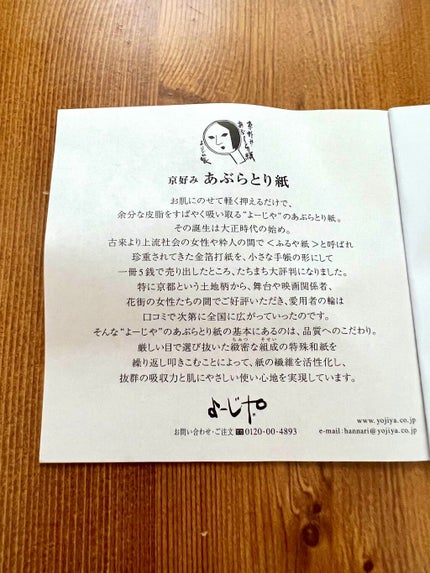 京好み あぶらとり紙
お肌にのせて軽く押えるだけで、
余分な皮脂をすばやく吸い取る“よーじや”のあぶらとり紙。
その誕生は大正時代の始め。
古来より上流社会の女性や粋人の間で<ふるや紙>と呼ばれ
珍重されてきた金箔打紙を、小さな手帳の形にして
一冊5銭で売り出したところ、たちまち大評判になりました。
特に京都という土地柄から、舞台や映画関係者、
花街の女性たちの間でご好評いただき、愛用者の輪は
口コミで次第に全国に広がっていったのです。
そんな“よーじや”のあぶらとり紙の基本にあるのは、品質へのこだわり。
厳しい目で選び抜いた緻密な組成の特殊和紙を
繰り返し叩きこむことによって、紙の繊維を活性化し、
抜群の吸収力と肌にやさしい使い心地を実現しています。
よーじや
www.yojiya.co.jp
お問い合わせ・ご注文 0120-00-4893 e-mail:hannari@yojiya.co.jp